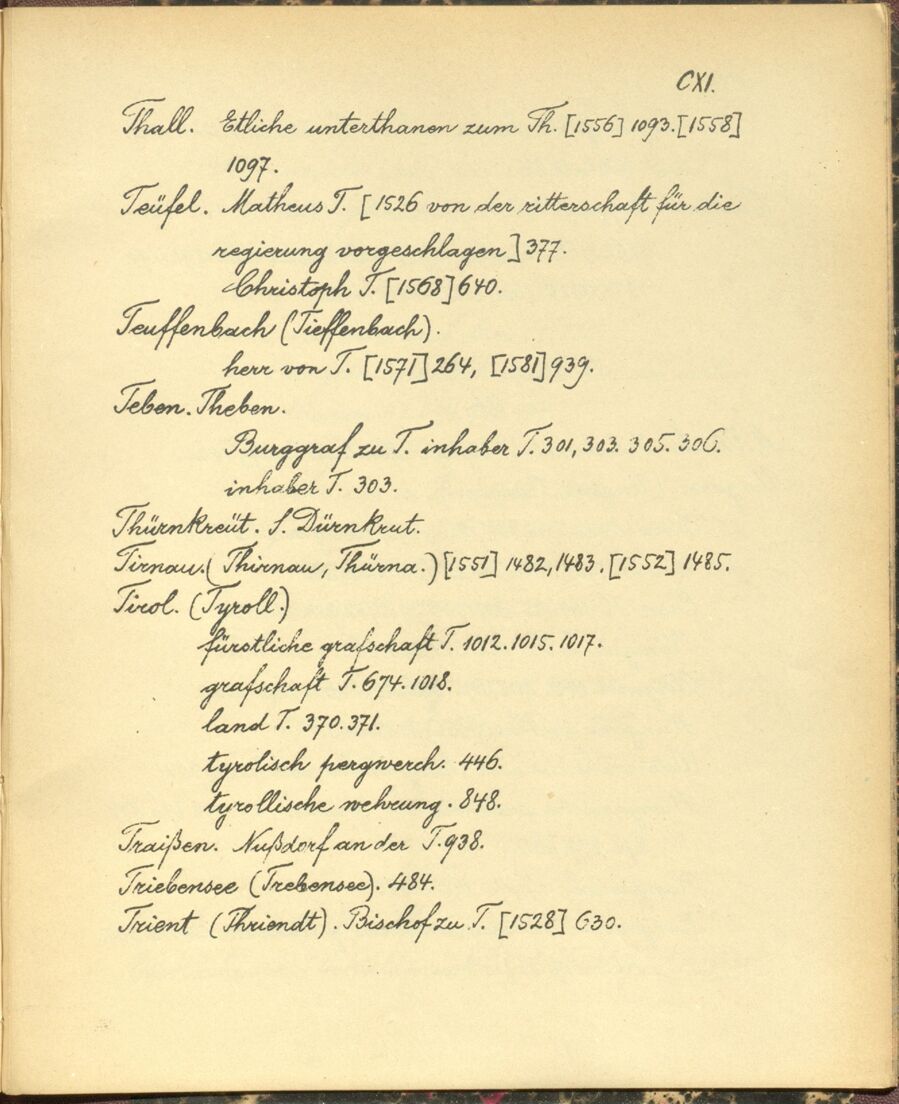 CXI.
Thall. Etliche unterthanen zum Th. [1556] 1093. [1558]
1097.
Teüfel. Matheus T. [1526 von der ritterschaft für die
regierung vorgeschlagen] 377.
Christoph T. [1568] 640.
Teuffenbach (Tieffenbach).
herr von T. [1571] 264, [1581] 939.
Teben. Theben.
Burggraf zu T. inhaber T. 301, 303. 305. 306.
inhaber T. 303.
Thürnkreüt. S. Dürnkrut.
Tirnau. (Thirnau, Thürna.) [1551] 1482, 1483. [1552] 1485.
Tirol. (Tyroll.)
fürstliche grafschaft T. 1012. 1015. 1017.
grafschaft T. 674. 1018.
land T. 370. 371.
tyrolisch pergwerch. 446.
tyrollische wehrung. 848.
Traißen. Nußdorf an der T. 938.
Triebensee (Trebensee). 484.
Trient (Thriendt). Bischof zu T. [1528] 630.